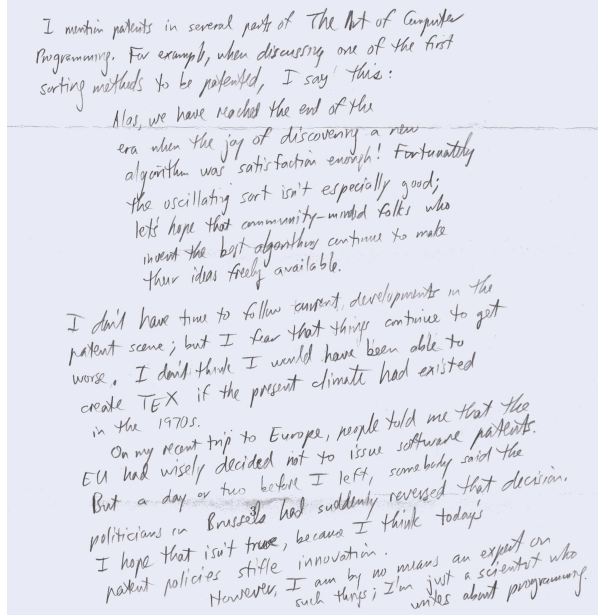 I mention patents in several parts of The Art of Computer
Programming. For example, when discussing one of the first
sorting methods to be patented, I say this:
Alas, we have reached the end of the
era when the joy of discovering a new
algorithm was satisfaction enough! Fortunately
the oscillating sort isn't especially good;
let's hope that community-minded folks who
invent the best algorithms continue to make
their ideas freely available.
I don't have time to follow current developments in the
patent scene; but I fear that things continue to get
worse. I don't think I would have been able to
create TEX if the present climate had existed
in the 1970s.
On my recent trip to Europe, people told me that the
EU had wisely decided not to issue software patents.
But a day or two before I left, somebody said the
politicians in Brussels had suddenly reversed that decision.
I hope that isn't true, because I think today's
patent policies stifle innovation.
However, I am by no means an expert on
such things; I'm just a scientist who
writes about programming.